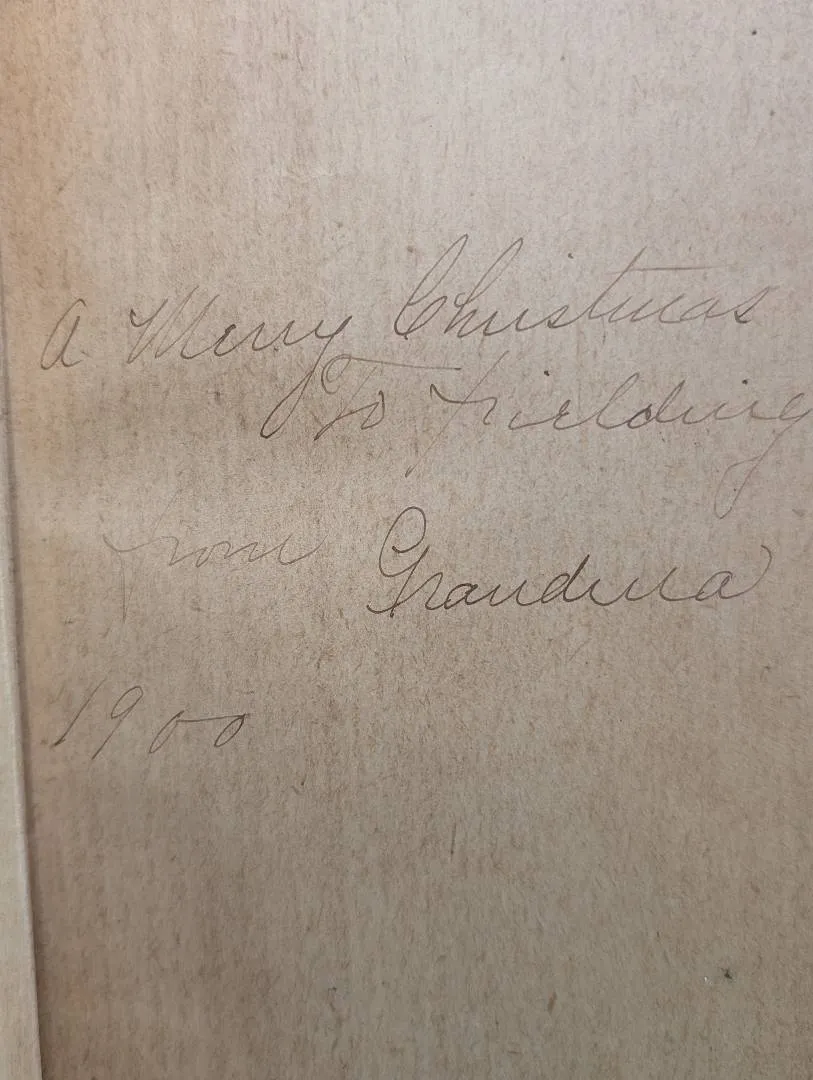 A Merry Christmas
To Fielding
from Grandma
1900